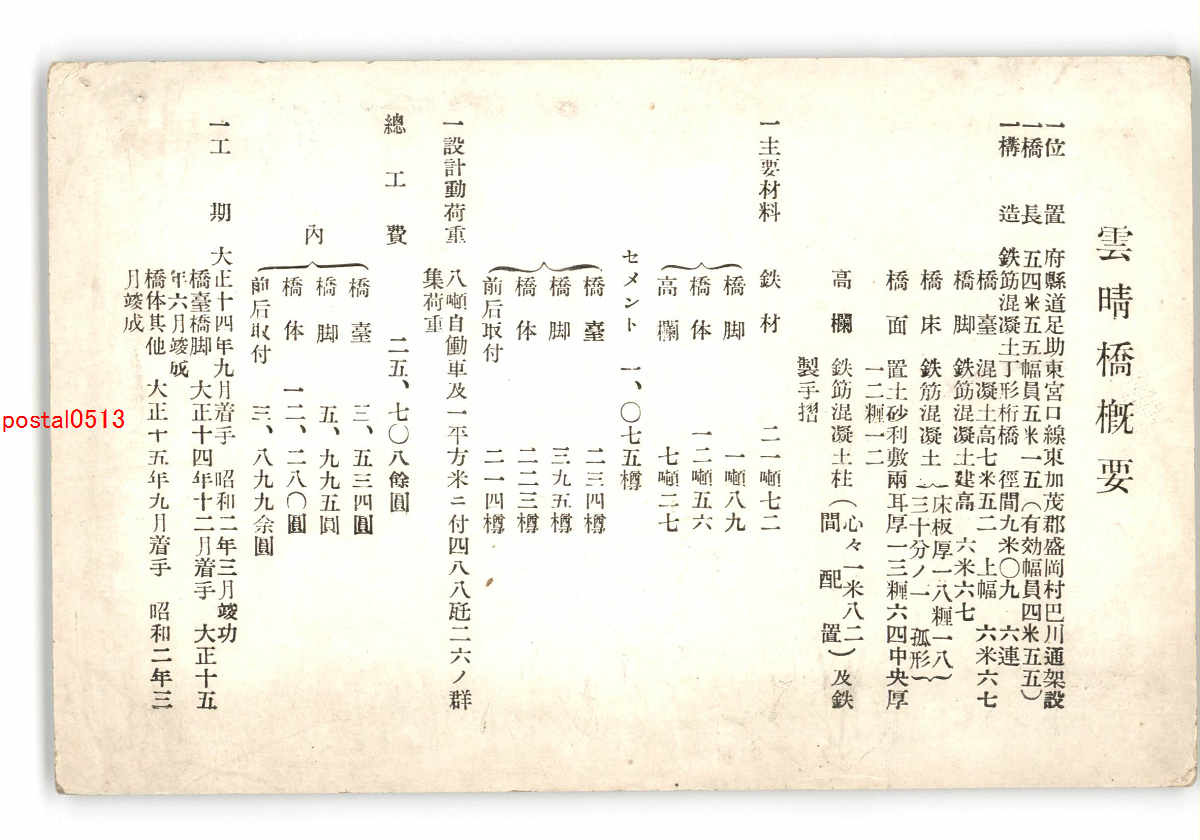 雲晴橋概要
一位置 府縣道足助東宮口線東加茂郡盛岡村巴川通架設
一橋長 五四米五五幅員五米一五(有効幅員四米五五)
一構造 鉄筋混凝土丁形桁橋 徑間九米〇九 六連
橋臺 混凝土高七米五二 上幅 六米六七
橋脚 鉄筋混凝土建高 六米六七
橋床 鉄筋混凝土 {床板厚一八糎一八}
{三十分ノ一 孤形}
橋面 置土砂利敷兩耳厚一三糎六四中央厚
一二糎一二
高欄 鉄筋混凝土柱(心々一米八二)及鉄
間配置
製手摺
一主要材料 鉄材 二一噸七二
橋脚 一噸八九
橋体 一二噸五六
高欄 七噸二七
セメント 一、〇七五樽
橋臺 二三四樽
橋脚 三九五樽
橋体 二二三樽
前后取付 二一四樽
一設計動荷重 八噸自働車及一平方米ニ付四八八瓩二六ノ群
集荷重
總工費 二五、七〇八餘圓
內
橋臺 三、五三四圓
橋脚 五、九九五圓
橋体 一二、二八〇圓
前后取付 三、八九九余圓
一工期 大正十四年九月着手 昭和二年三月竣功
橋臺橋脚 大正十四年十二月着手 大正十五
年六月竣成
橋体其他 大正十五年九月着手 昭和二年三
月竣成
postal0513